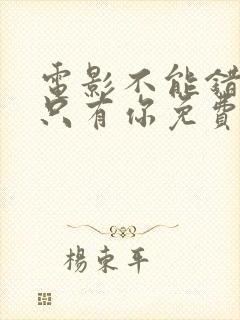 電影不能錯
只有你免費
楊東平